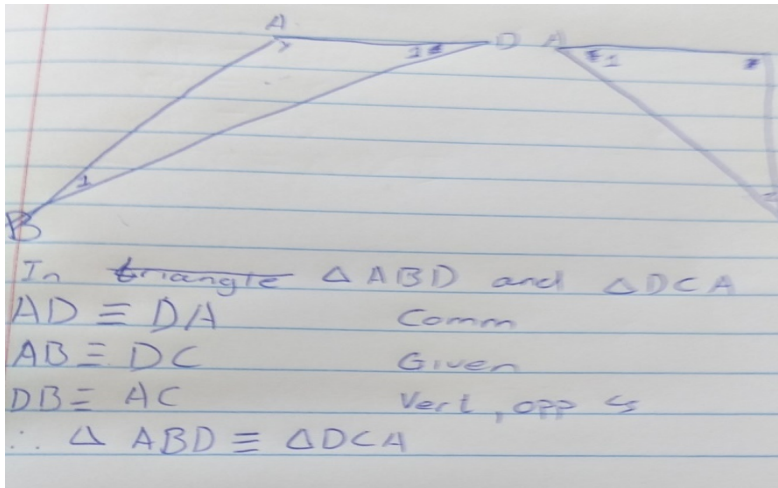 A D A
1 1 1
1
B
In triangle △ ABD and △DCA
AD ≡ DA Comm
AB ≡ DC Given
DB ≡ AC Vert, opp ∠s
∴ △ ABD ≡ △DCA